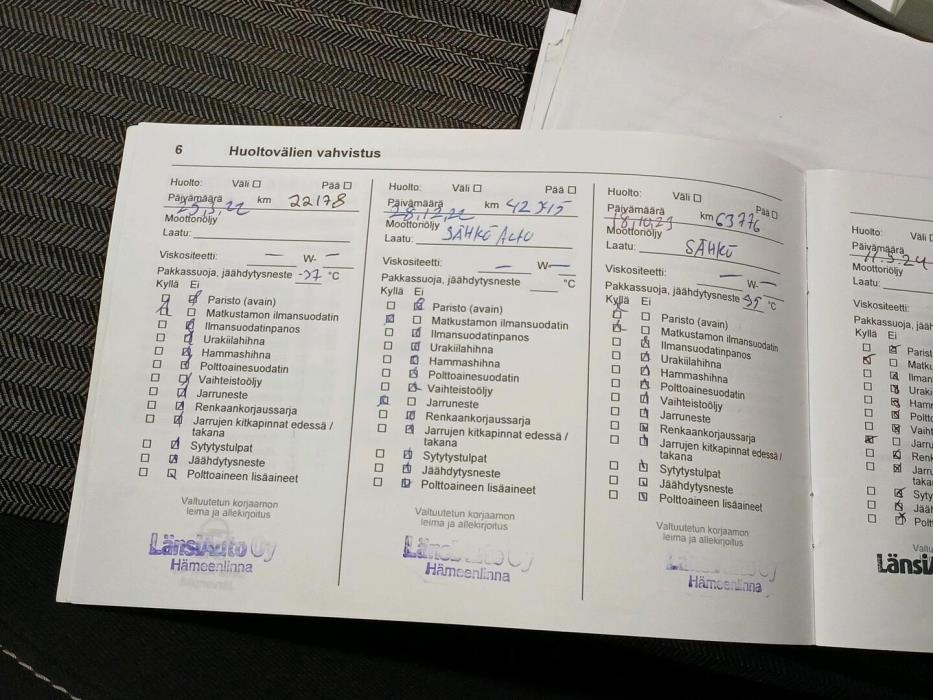 6 Huoltovälien vahvistus
Huolto: Väli Pää
Päivämäärä 25.3.22 km 22178
Moottoriöljy
Laatu:
Viskositeetti: — W- —
Pakkassuoja, jäähdytysneste -37 °C
Kyllä Ei
Paristo (avain)
Matkustamon ilmansuodatin
Ilmansuodatinpanos
Urakiilahihna
Hammashihna
Polttoainesuodatin
Vaihteistoöljy
Jarruneste
Renkaankorjaussarja
Jarrujen kitkapinnat edessä /
takana
Sytytystulpat
Jäähdytysneste
Polttoaineen lisäaineet
Valtuutetun korjaamon
leima ja allekirjoitus
LänsiAuto Oy
Hämeenlinna
Huolto: Väli Pää
Päivämäärä 28.12.22 km
Moottoriöljy
Laatu: SÄHKÖ AUTO
Viskositeetti: — W- —
Pakkassuoja, jäähdytysneste °C
Kyllä Ei
Paristo (avain)
Matkustamon ilmansuodatin
Ilmansuodatinpanos
Urakiilahihna
Hammashihna
Polttoainesuodatin
Vaihteistoöljy
Jarruneste
Renkaankorjaussarja
Jarrujen kitkapinnat edessä /
takana
Sytytystulpat
Jäähdytysneste
Polttoaineen lisäaineet
Valtuutetun korjaamon
leima ja allekirjoitus
LänsiAuto Oy
Hämeenlinna
Huolto: Väli Pää
Päivämäärä 18.10.23 km 63776
Moottoriöljy
Laatu: SÄHKÖ
Viskositeetti: — W- —
Pakkassuoja, jäähdytysneste °C
Kyllä Ei
Paristo (avain)
Matkustamon ilmansuodatin
Ilmansuodatinpanos
Urakiilahihna
Hammashihna
Polttoainesuodatin
Vaihteistoöljy
Jarruneste
Renkaankorjaussarja
Jarrujen kitkapinnat edessä /
takana
Sytytystulpat
Jäähdytysneste
Polttoaineen lisäaineet
Valtuutetun korjaamon
leima ja allekirjoitus
Hämeenlinna
Huolto: Väli
Päivämäärä 11.3.24
Moottoriöljy
Laatu:
Viskositeetti:
Pakkassuoja, jääh
Kyllä Ei
Parist
Matku
Ilman
Uraki
Hamm
Poltto
Vaiht
Jarru
Renk
Jarru
taka
Syty
Jääh
Polt
Valtu
Länsi